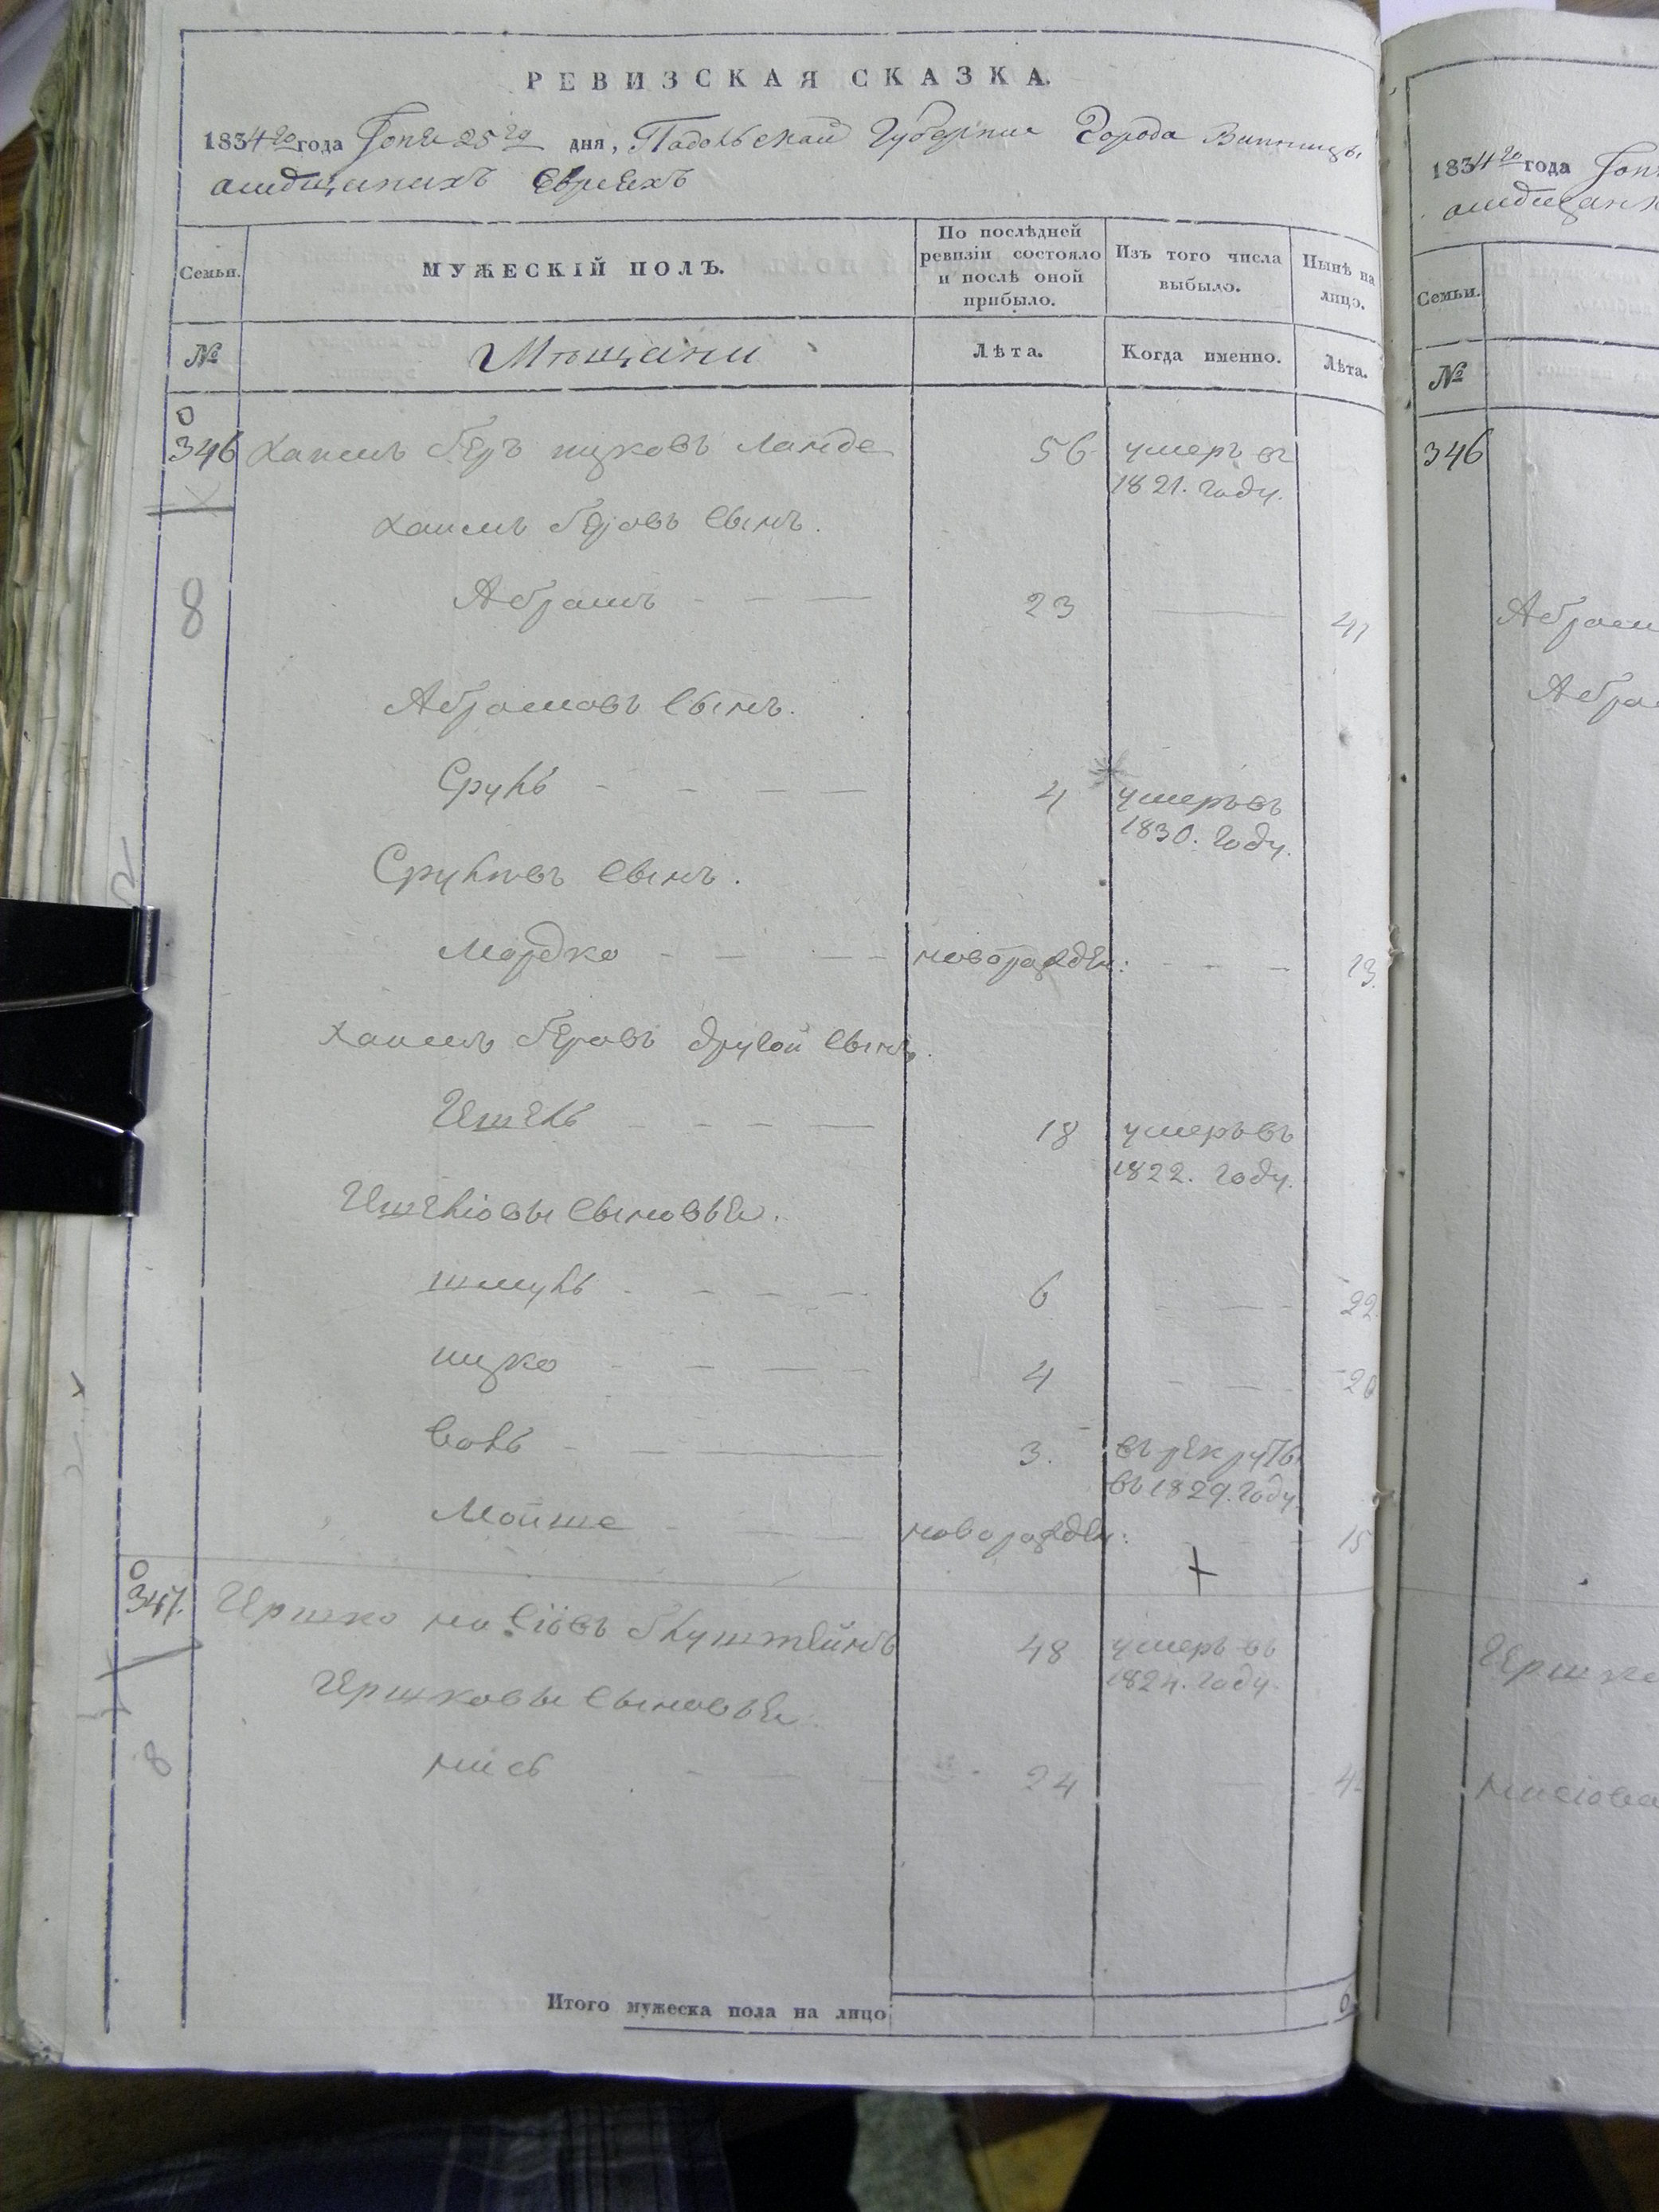 РЕВИЗСКАЯ СКАЗКА.
1834го года Іюня 25го дня, Падольской Губерніи Города Винницы
омѣщанахъ Евреяхъ
Семьи.
МУЖЕСКІЙ ПОЛЪ.
По послѣдней ревизіи состояло и послѣ оной прибыло.
Изъ того числа выбыло.
Нынѣ на лицо.
№
Мѣщани
Лѣта.
Когда именно.
Лѣта.
346 Хаимъ Беръ ицковъ Ланде 56 умеръ въ
1821. году.
Хаимъ Беровъ сынъ.
8
Абрамъ 23 41
Абрамовъ сынъ.
Сруль 4 умеръ въ
1830. году.
Срулювъ сынъ.
Мордко новорожден: 13.
Хаимъ Беровъ другой сынъ.
18 умеръ въ
1822. году.
сыновья.
шмуль 6 22
ицко 4 20
3. въ рекруты
въ 1829. году
Мойше новорожден: 15
347. Гершко 48 умеръ въ
1824. году.
Гершковы сыновья.
8
24
Итого мужеска пола на лицо 6
1834го года
346
Абрам
Гершко